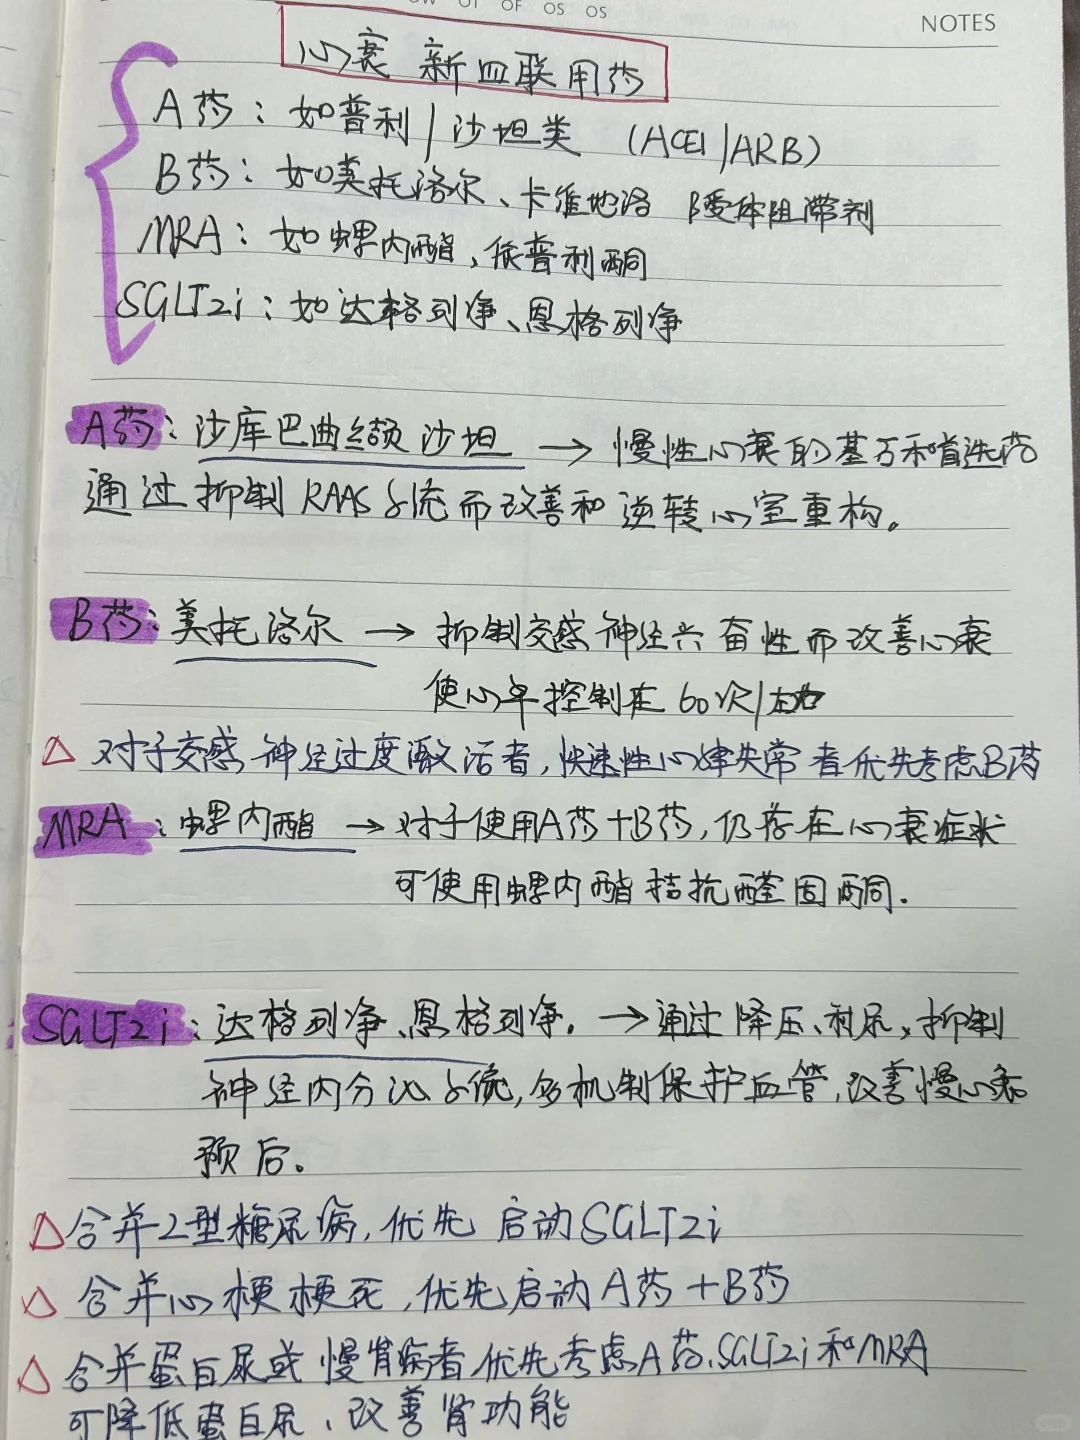 OF OS OS
NOTES
心衰 新四联用药
A药：如普利/沙坦类 (ACEI/ARB)
B药：如美托洛尔、卡维地洛 β受体阻滞剂
MRA：如螺内酯、依普利酮
SGLT2i：如达格列净、恩格列净
A药：沙库巴曲缬沙坦 → 慢性心衰的基石和首选药
通过抑制RAAS系统而改善和逆转心室重构。
B药：美托洛尔 → 抑制交感神经兴奋性而改善心衰
使心率控制在60次/左右
△ 对于交感神经过度激活者，快速性心律失常者优先考虑B药
MRA：螺内酯 → 对于使用A药+B药，仍存在心衰症状
可使用螺内酯拮抗醛固酮.
SGLT2i：达格列净、恩格列净. → 通过降压、利尿、抑制
神经内分泌系统，多机制保护血管，改善慢心衰
预后。
△ 合并2型糖尿病，优先启动SGLT2i
△ 合并心梗梗死，优先启动A药+B药
△ 合并蛋白尿或慢肾病者优先考虑A药、SGLT2i和MRA
可降低蛋白尿、改善肾功能